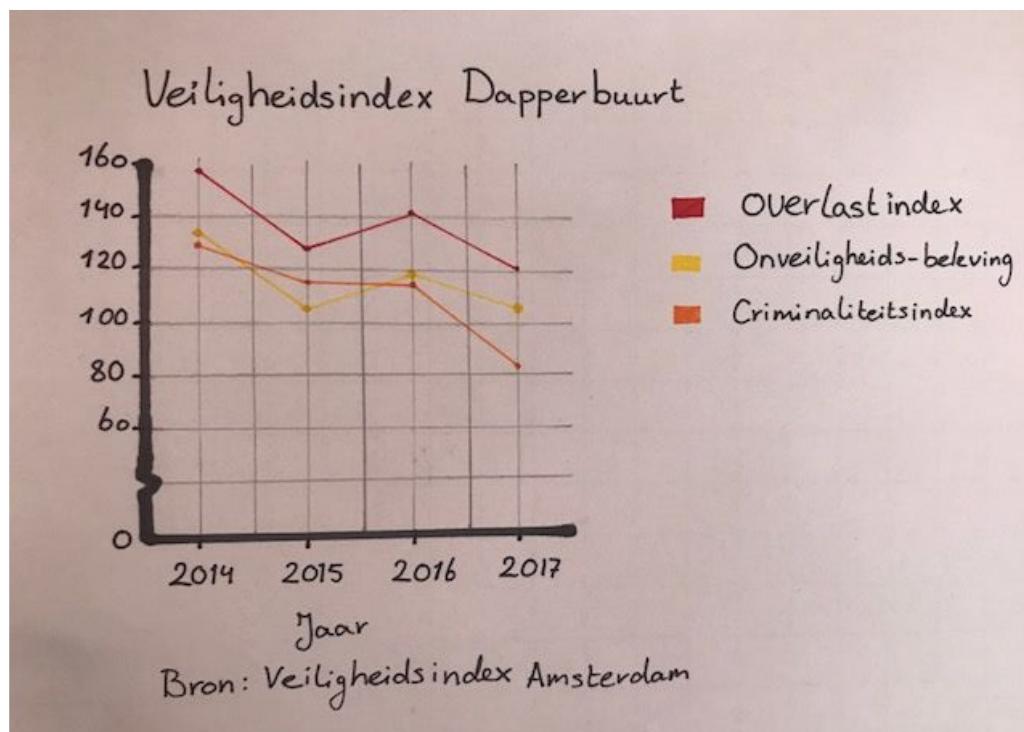 Veiligheidsindex Dapperbuurt
160
140
120
100
80
60
0
2014 2015 2016 2017
Jaar
Bron: Veiligheidsindex Amsterdam
Overlastindex
Onveiligheids-beleving
Criminaliteitsindex